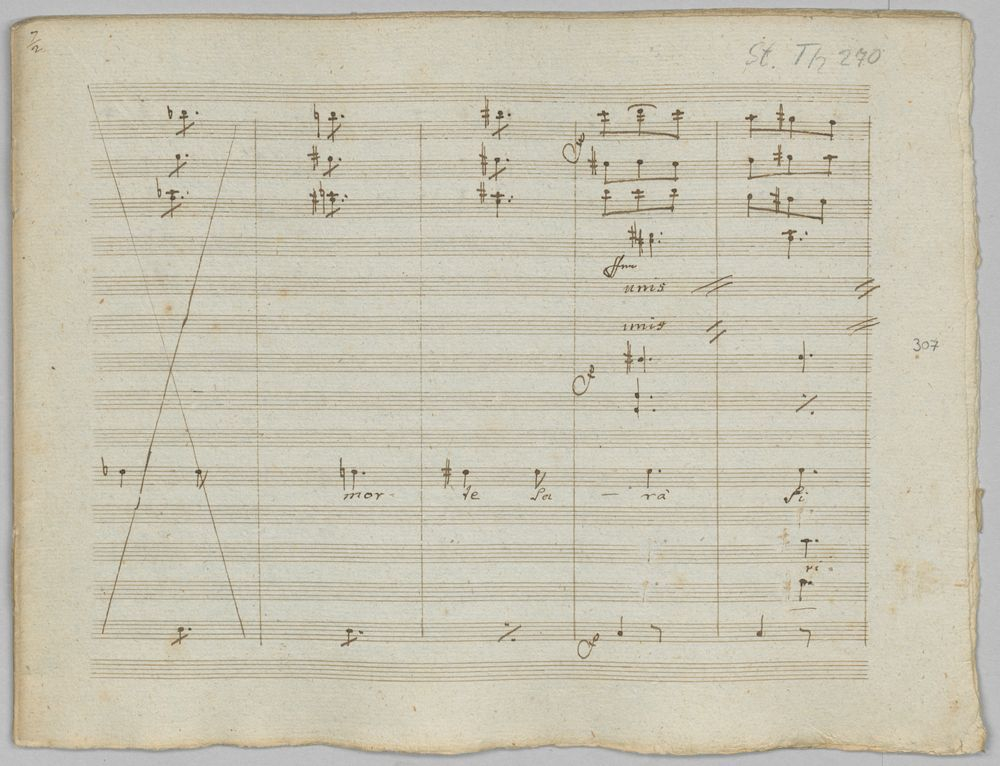 7/2
St. Th 270
unis
unis
307
mor- te sa - rà si
ri -